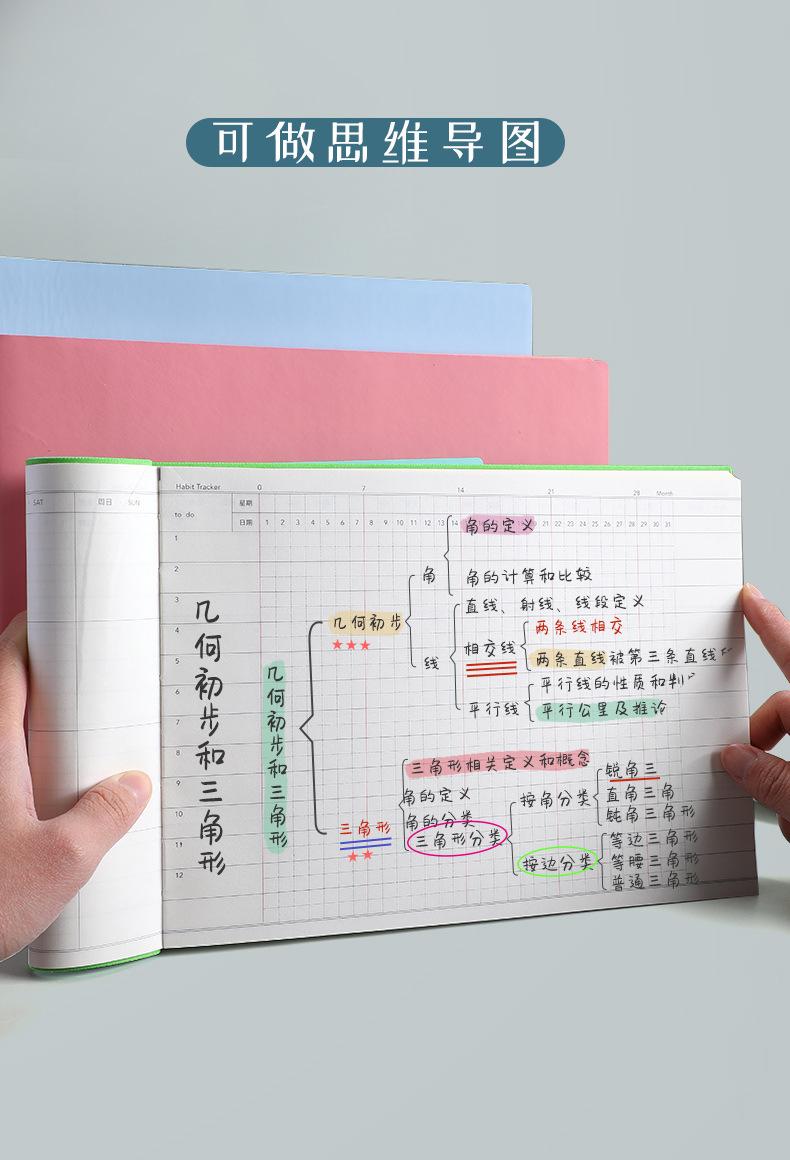 可做思维导图
SAT 周日 SUN
Habit Tracker 0 7 14 21 28 Month
to do
星期
日期 1 2 3 4 5 6 7 8 9 10 11 12 13 14 21 22 23 24 25 26 27 28 29 30 31
1
2
3
4
5
6
7
8
9
10
11
12
几何初步和三角形
几何初步和三角形
几何初步
角
角的定义
角的计算和比较
线
直线、射线、线段定义
相交线
两条线相交
两条直线被第三条直线
平行线
平行线的性质和判
平行公里及推论
三角形
三角形相关定义和概念
角的定义
角的分类
三角形分类
按角分类
锐角三
直角三角
钝角三角形
按边分类
等边三角形
等腰三角形
普通三角形